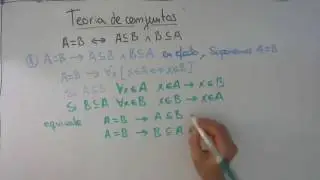 Teoria de conjuntos
A=B ↔ A⊆B ∧ B⊆A
① A=B → A⊆B ∧ B⊆A en efecto, Suponemos A=B
A=B → ∀x[x∈A ↔ x∈B]
Si A⊆B ∀x∈A x∈A → x∈B
Si B⊆A ∀x∈B x∈B → x∈A
equivale A=B → A⊆B
A=B → B⊆A